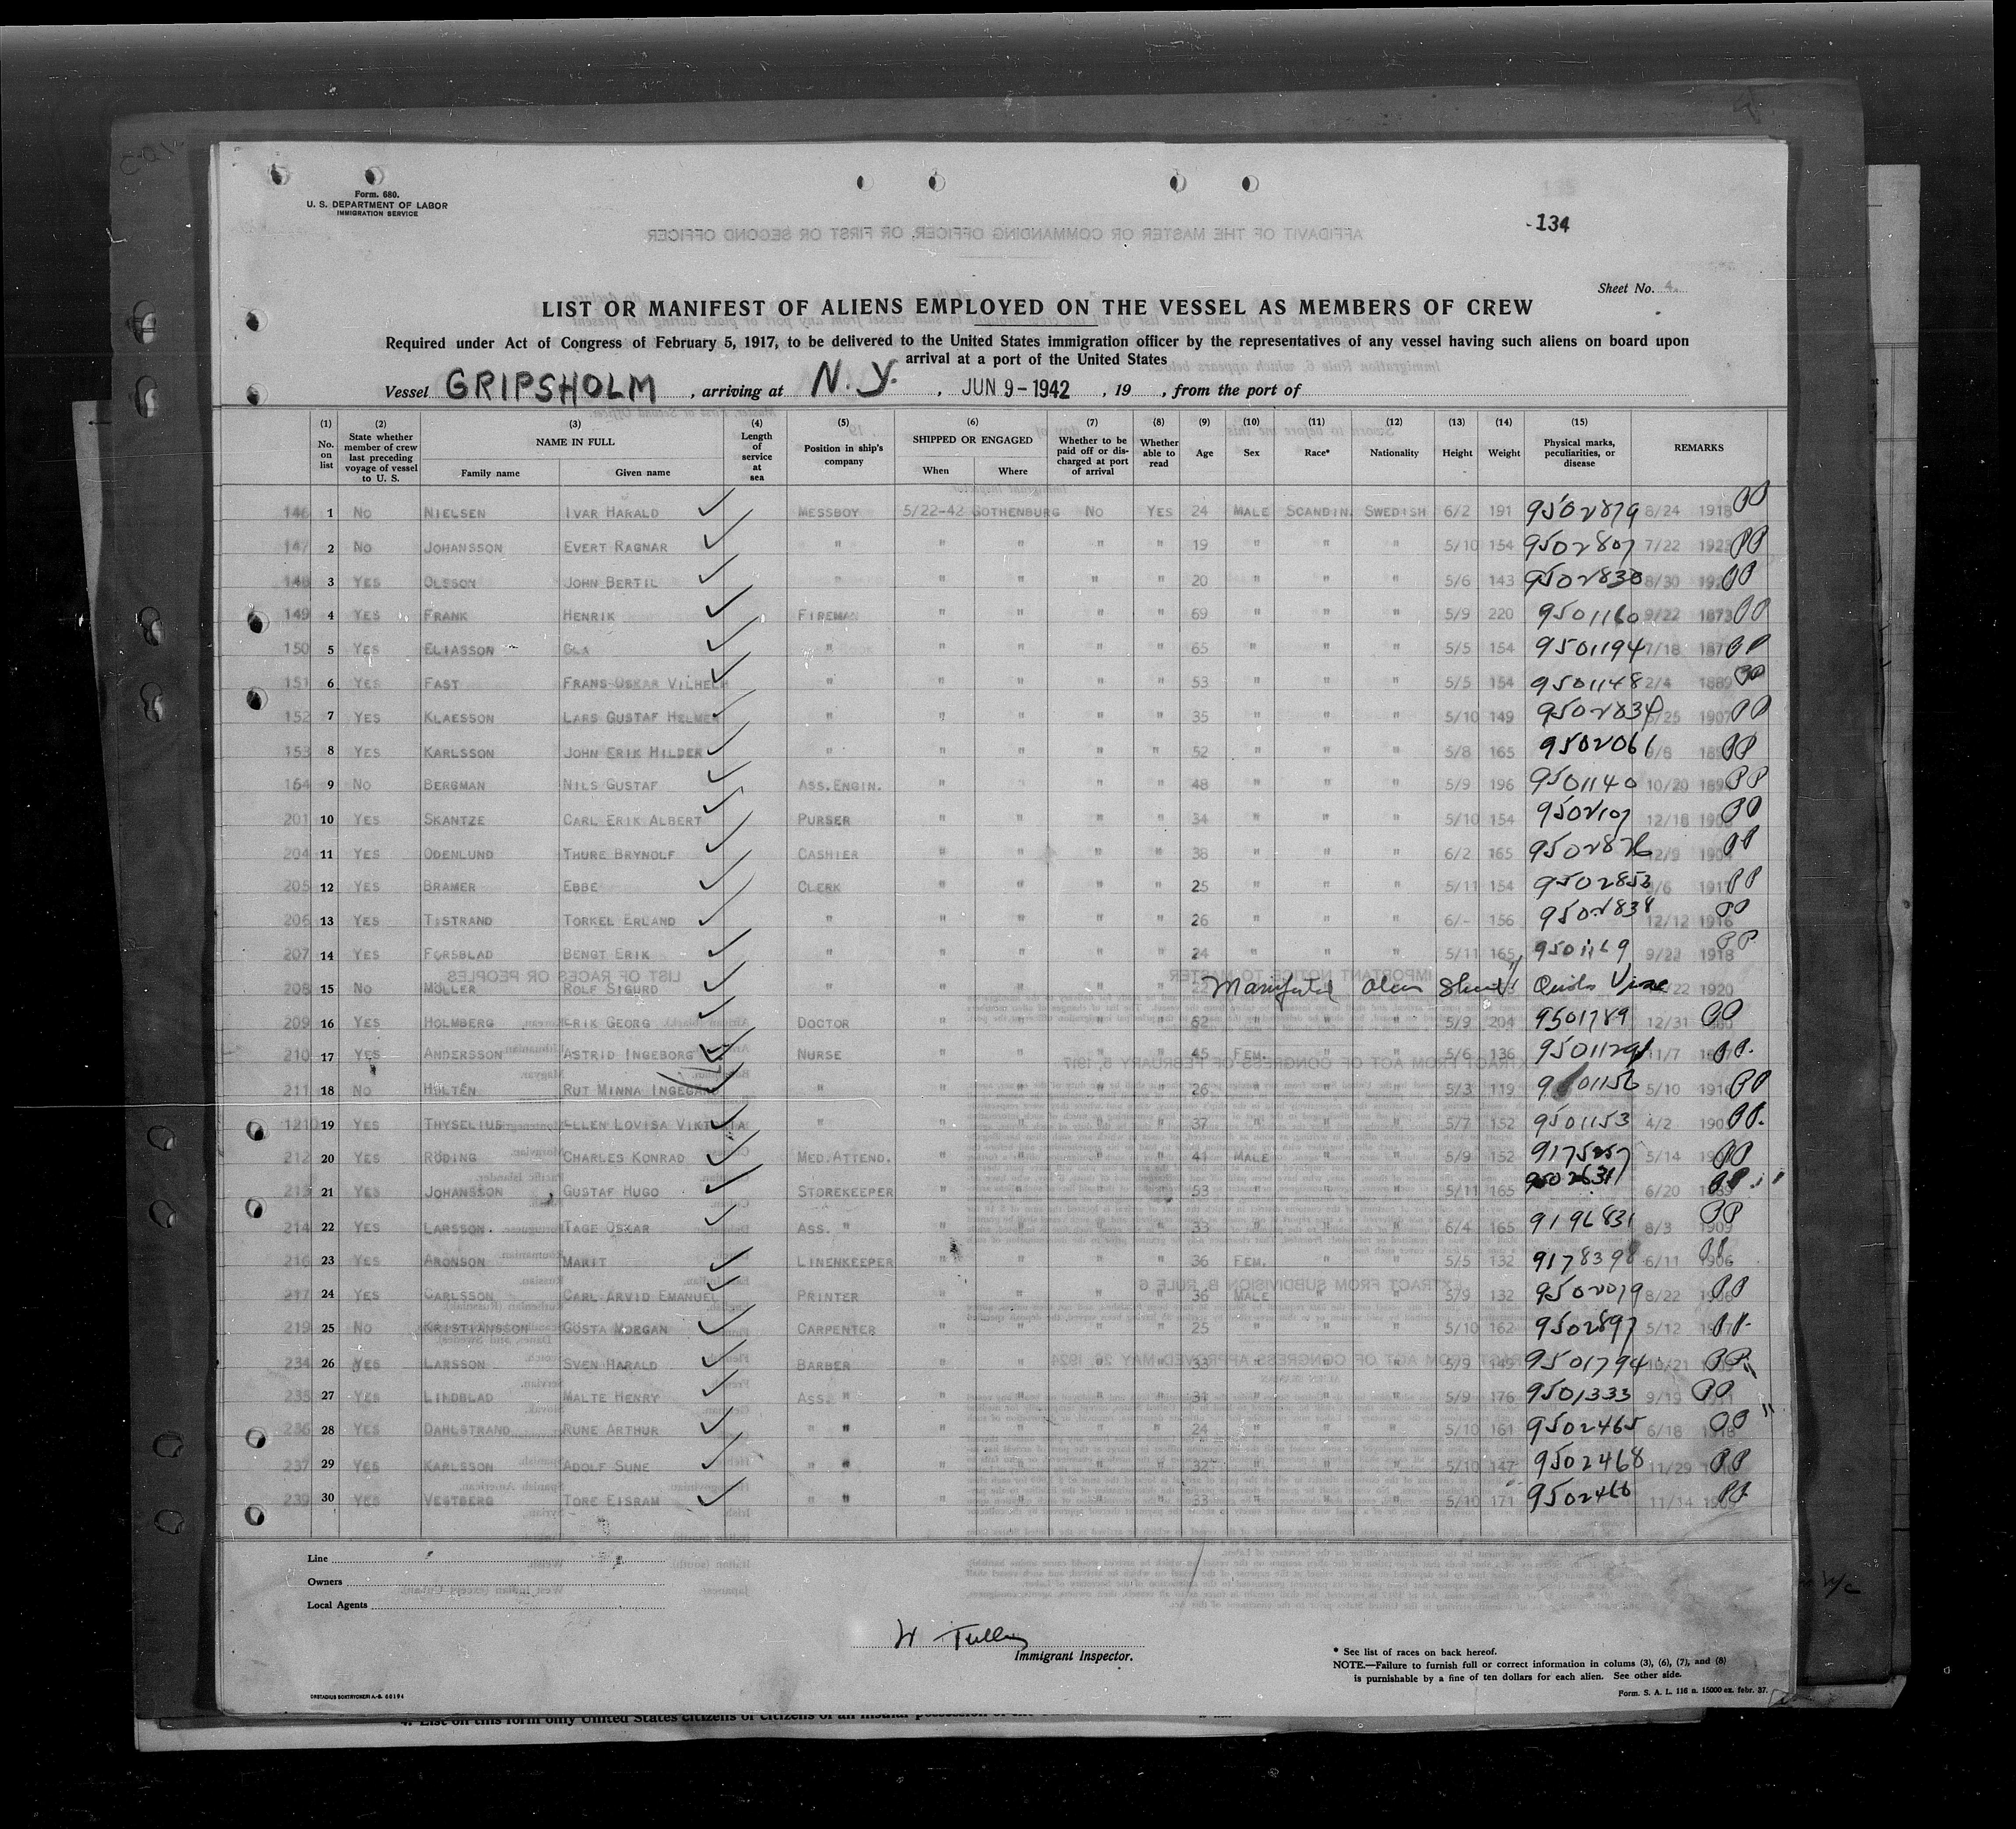 Form. 680.
U. S. DEPARTMENT OF LABOR
IMMIGRATION SERVICE
-134
Sheet No. 4.
LIST OR MANIFEST OF ALIENS EMPLOYED ON THE VESSEL AS MEMBERS OF CREW
Required under Act of Congress of February 5, 1917, to be delivered to the United States immigration officer by the representatives of any vessel having such aliens on board upon
arrival at a port of the United States
Vessel GRIPSHOLM , arriving at N. Y. , JUN 9 - 1942 , 19 , from the port of
(1) No. on list (2) State whether member of crew last preceding voyage of vessel to U. S. (3) NAME IN FULL Family name Given name (4) Length of service at sea (5) Position in ship's company (6) SHIPPED OR ENGAGED When Where (7) Whether to be paid off or discharged at port of arrival (8) Whether able to read (9) Age (10) Sex (11) Race* (12) Nationality (13) Height (14) Weight (15) Physical marks, peculiarities, or disease REMARKS
146 1 No NIELSEN IVAR HARALD ✓ MESSBOY 5/22-42 GOTHENBURG No YES 24 MALE SCANDIN. SWEDISH 6/2 191 9502879 8/24 1918 PP
147 2 No JOHANSSON EVERT RAGNAR ✓ " " " " " 19 " " " 5/10 154 9502807 7/22 PP
148 3 YES OLSSON JOHN BERTIL ✓ " " " " " 20 " " " 5/6 143 9502830 8/30 PP
149 4 YES FRANK HENRIK ✓ FIREMAN " " " " 69 " " " 5/9 220 9501160 9/22 1873 PP
150 5 YES ELIASSON OLA ✓ " " " " " 65 " " " 5/5 154 9501194 7/18 PP
151 6 YES FAST FRANS OSKAR VILHELM ✓ " " " " " 53 " " " 5/5 154 9501148 2/4 1889 PP
152 7 YES KLAESSON LARS GUSTAF HELMER ✓ " " " " " 35 " " " 5/10 149 9502834 1907 PP
153 8 YES KARLSSON JOHN ERIK HILDER ✓ " " " " " 52 " " " 5/8 165 9502061 PP
164 9 No BERGMAN NILS GUSTAF ✓ ASS.ENGIN. " " " " 48 " " " 5/9 196 9501140 10/20 PP
201 10 YES SKANTZE CARL ERIK ALBERT ✓ PURSER " " " " 34 " " " 5/10 154 9502107 12/18 PP
204 11 YES ODENLUND THURE BRYNOLF ✓ CASHIER " " " " 38 " " " 6/2 165 9502876 12/9 PP
205 12 YES BRAMER EBBE ✓ CLERK " " " " 25 " " " 5/11 154 9502853 PP
206 13 YES TISTRAND TORKEL ERLAND ✓ " " " " " 26 " " " 6/- 156 9502838 12/12 1916 PP
207 14 YES FORSBLAD BENGT ERIK ✓ " " " " " 24 " " " 5/11 165 9501169 9/22 1918 PP
208 15 No MÖLLER ROLF SIGURD ✓ Manifested Alien Sheet 1920
209 16 YES HOLMBERG ERIK GEORG ✓ DOCTOR " " " " " " " 5/9 204 9501789 12/31 PP
210 17 YES ANDERSSON ASTRID INGEBORG ✓ NURSE " " " " 45 FEM. " " 5/6 136 11/7 PP.
211 18 No HULTÉN RUT MINNA INGEGARD ✓ " " " " " 26 " " " 5/3 119 5/10 1916 PP
1210 19 YES THYSELIUS ELLEN LOVISA VIKTORIA ✓ " " " " " 37 " " " 5/7 152 9501153 4/2 PP.
212 20 YES RÖDING CHARLES KONRAD ✓ MED.ATTEND. " " " " 41 MALE " " 5/9 152 5/14 PP
213 21 YES JOHANSSON GUSTAF HUGO ✓ STOREKEEPER " " " " 53 " " " 5/11 165 6/20 PP
214 22 YES LARSSON TAGE OSKAR ✓ ASS. " " " " " 33 " " " 6/4 165 9196831 8/3 1909 PP
216 23 YES ARONSON MARIT ✓ LINENKEEPER " " " " 36 FEM. " " 5/5 132 9178398 6/11 1906 PP
217 24 YES CARLSSON CARL ARVID EMANUEL ✓ PRINTER " " " " 36 MALE " " 5/9 132 9502079 8/22 PP
219 25 No KRISTIANSSON GÖSTA MORGAN ✓ CARPENTER " " " " 25 " " " 5/10 162 9502897 5/12 PP.
234 26 YES LARSSON SVEN HARALD ✓ BARBER " " " " 33 " " " 5/9 149 9501794 10/21 PP
235 27 YES LINDBLAD MALTE HENRY ✓ ASS. " " " " " 31 " " " 5/9 176 9501333 9/19 PP
236 28 YES DAHLSTRAND RUNE ARTHUR ✓ " " " " " " 24 " " " 5/10 161 9502465 6/18 PP
237 29 YES KARLSSON ADOLF SUNE ✓ " " " " " " 32 " " " 5/10 147 9502468 11/29 PP
239 30 YES VESTBERG TORE EISRAM ✓ " " " " " " 33 " " " 5/10 171 9502466 11/14 PP.
Line
Owners
Local Agents
W Tully
Immigrant Inspector.
* See list of races on back hereof.
NOTE.—Failure to furnish full or correct information in colums (3), (6), (7), and (8)
is punishable by a fine of ten dollars for each alien. See other side.
Form. S. A. L. 116 n. 15000 ex. febr. 37.